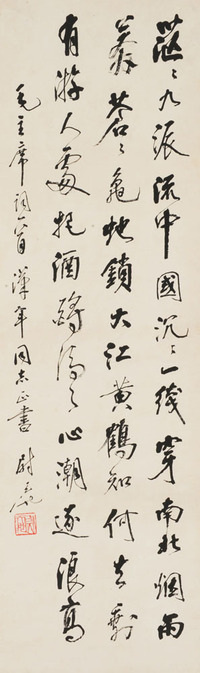 茫〻九派流中國沉〻一綫穿南北烟雨
莽蒼〻龜蛇鎖大江黃鶴知何去剩
有游人處把酒酹滔〻心潮逐浪高
毛主席詞一首 漢年同志正書 尉天池